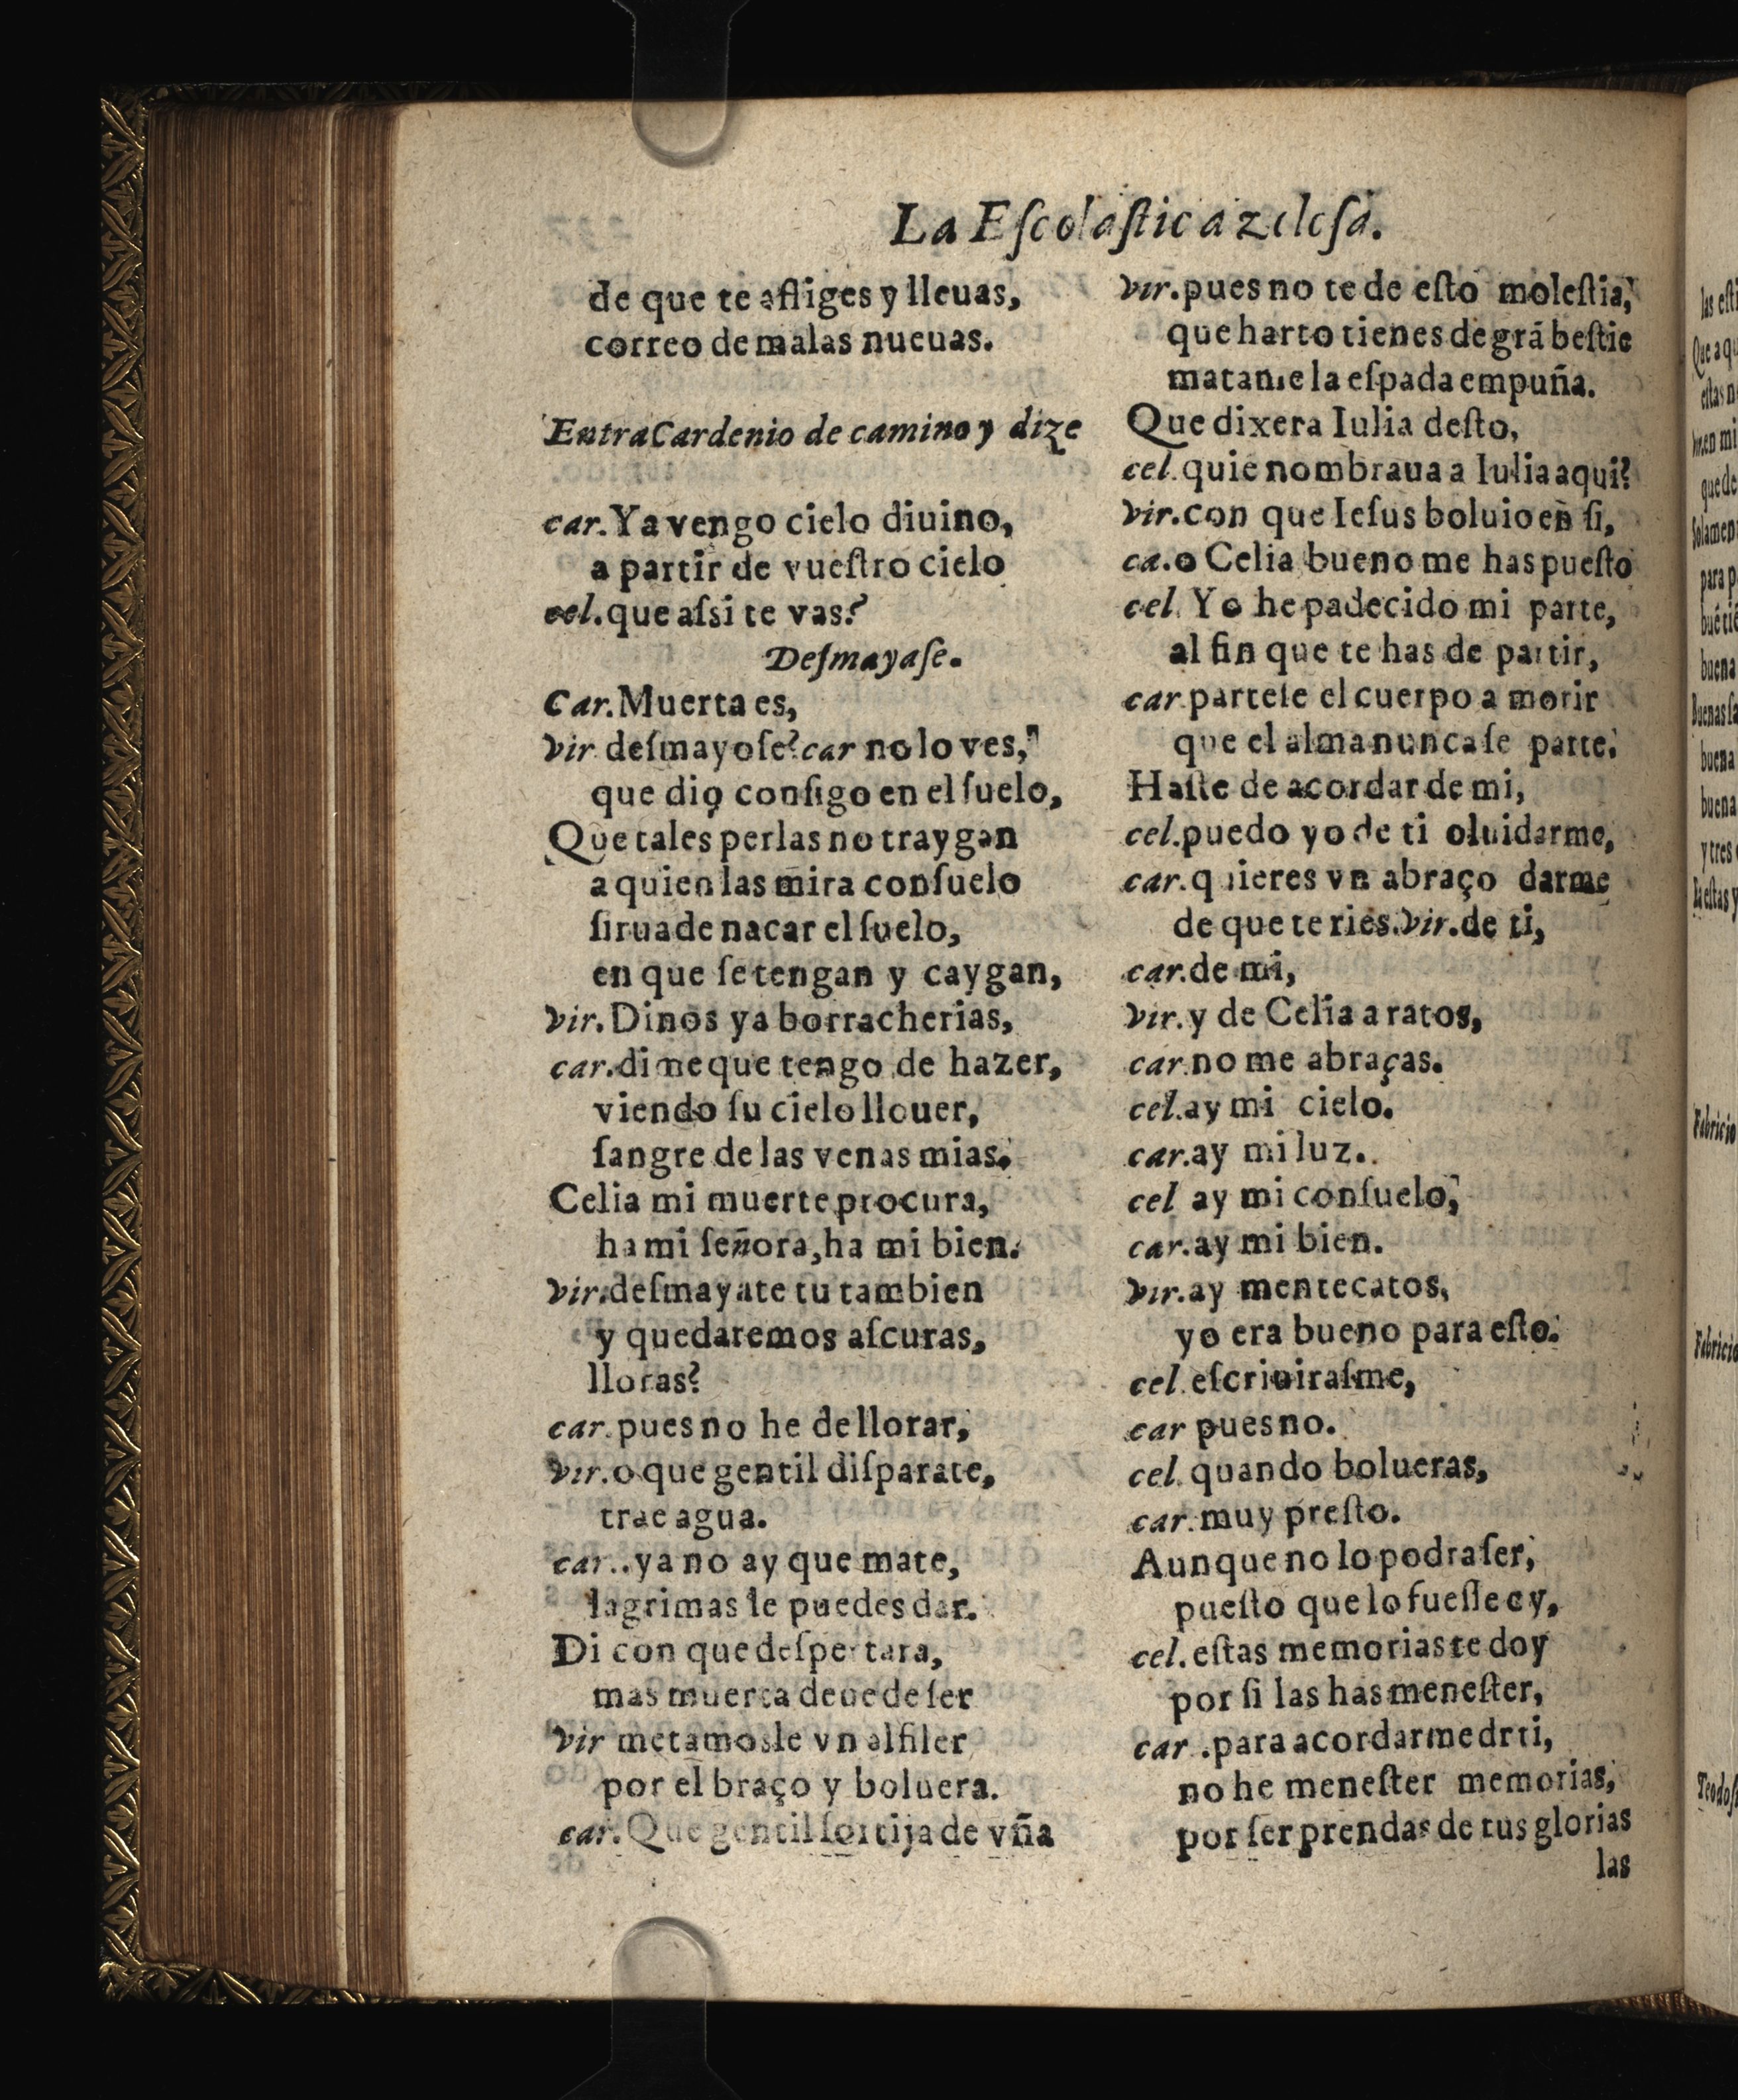 La Eſcolaſtica zelcſa.
de que te afliges y lleuas,
correo de malas nueuas.
Entra Cardenio de camino y dize
car. Ya vengo cielo diuino,
a partir de vueſtro cielo
cel. que aſsi te vas?
Deſmayaſe.
Car. Muerta es,
Vir. deſmayoſe? car no lo ves,
que dio conſigo en el ſuelo,
Que tales perlas no traygan
a quien las mira conſuelo
ſirua de nacar el ſuelo,
en que ſe tengan y caygan,
Vir. Dinos ya borracherias,
car. dime que tengo de hazer,
viendo ſu cielo llouer,
ſangre de las venas mias.
Celia mi muerte procura,
ha mi ſeñora, ha mi bien.
Vir. deſmayate tu tambien
y quedaremos aſcuras,
lloras?
car. pues no he de llorar,
Vir. o que gentil diſparate,
trae agua.
car.. ya no ay que mate,
lagrimas le puedes dar.
Di con que deſpertara,
mas muerta deue de ſer
Vir metamosle vn alfiler
por el braço y boluera.
car. Que gentil ſortija de vña
Vir. pues no te de eſto moleſtia,
que harto tienes de grã beſtie
matame la eſpada empuña.
Que dixera Iulia deſto,
cel. quie nombraua a Iulia aqui?
Vir. con que Ieſus boluio en ſi,
ca. o Celia bueno me has pueſto
cel. Yo he padecido mi parte,
al fin que te has de partir,
car. parteſe el cuerpo a morir
que el alma nunca ſe parte.
Haſte de acordar de mi,
cel. puedo yo de ti oluidarme,
car. quieres vn abraço darme
de que te ries. Vir. de ti,
car. de mi,
Vir. y de Celia a ratos,
car. no me abraças.
cel. ay mi cielo.
car. ay mi luz.
cel ay mi conſuelo,
car. ay mi bien.
Vir. ay mentecatos,
yo era bueno para eſto.
cel. eſcriuiraſme,
car pues no.
cel. quando bolueras,
car. muy preſto.
Aunque no lo podra ſer,
pueſto que lo fueſſe oy,
cel. eſtas memorias te doy
por ſi las has meneſter,
car. para acordarme drti,
no he meneſter memorias,
por ſer prendas de tus glorias
las